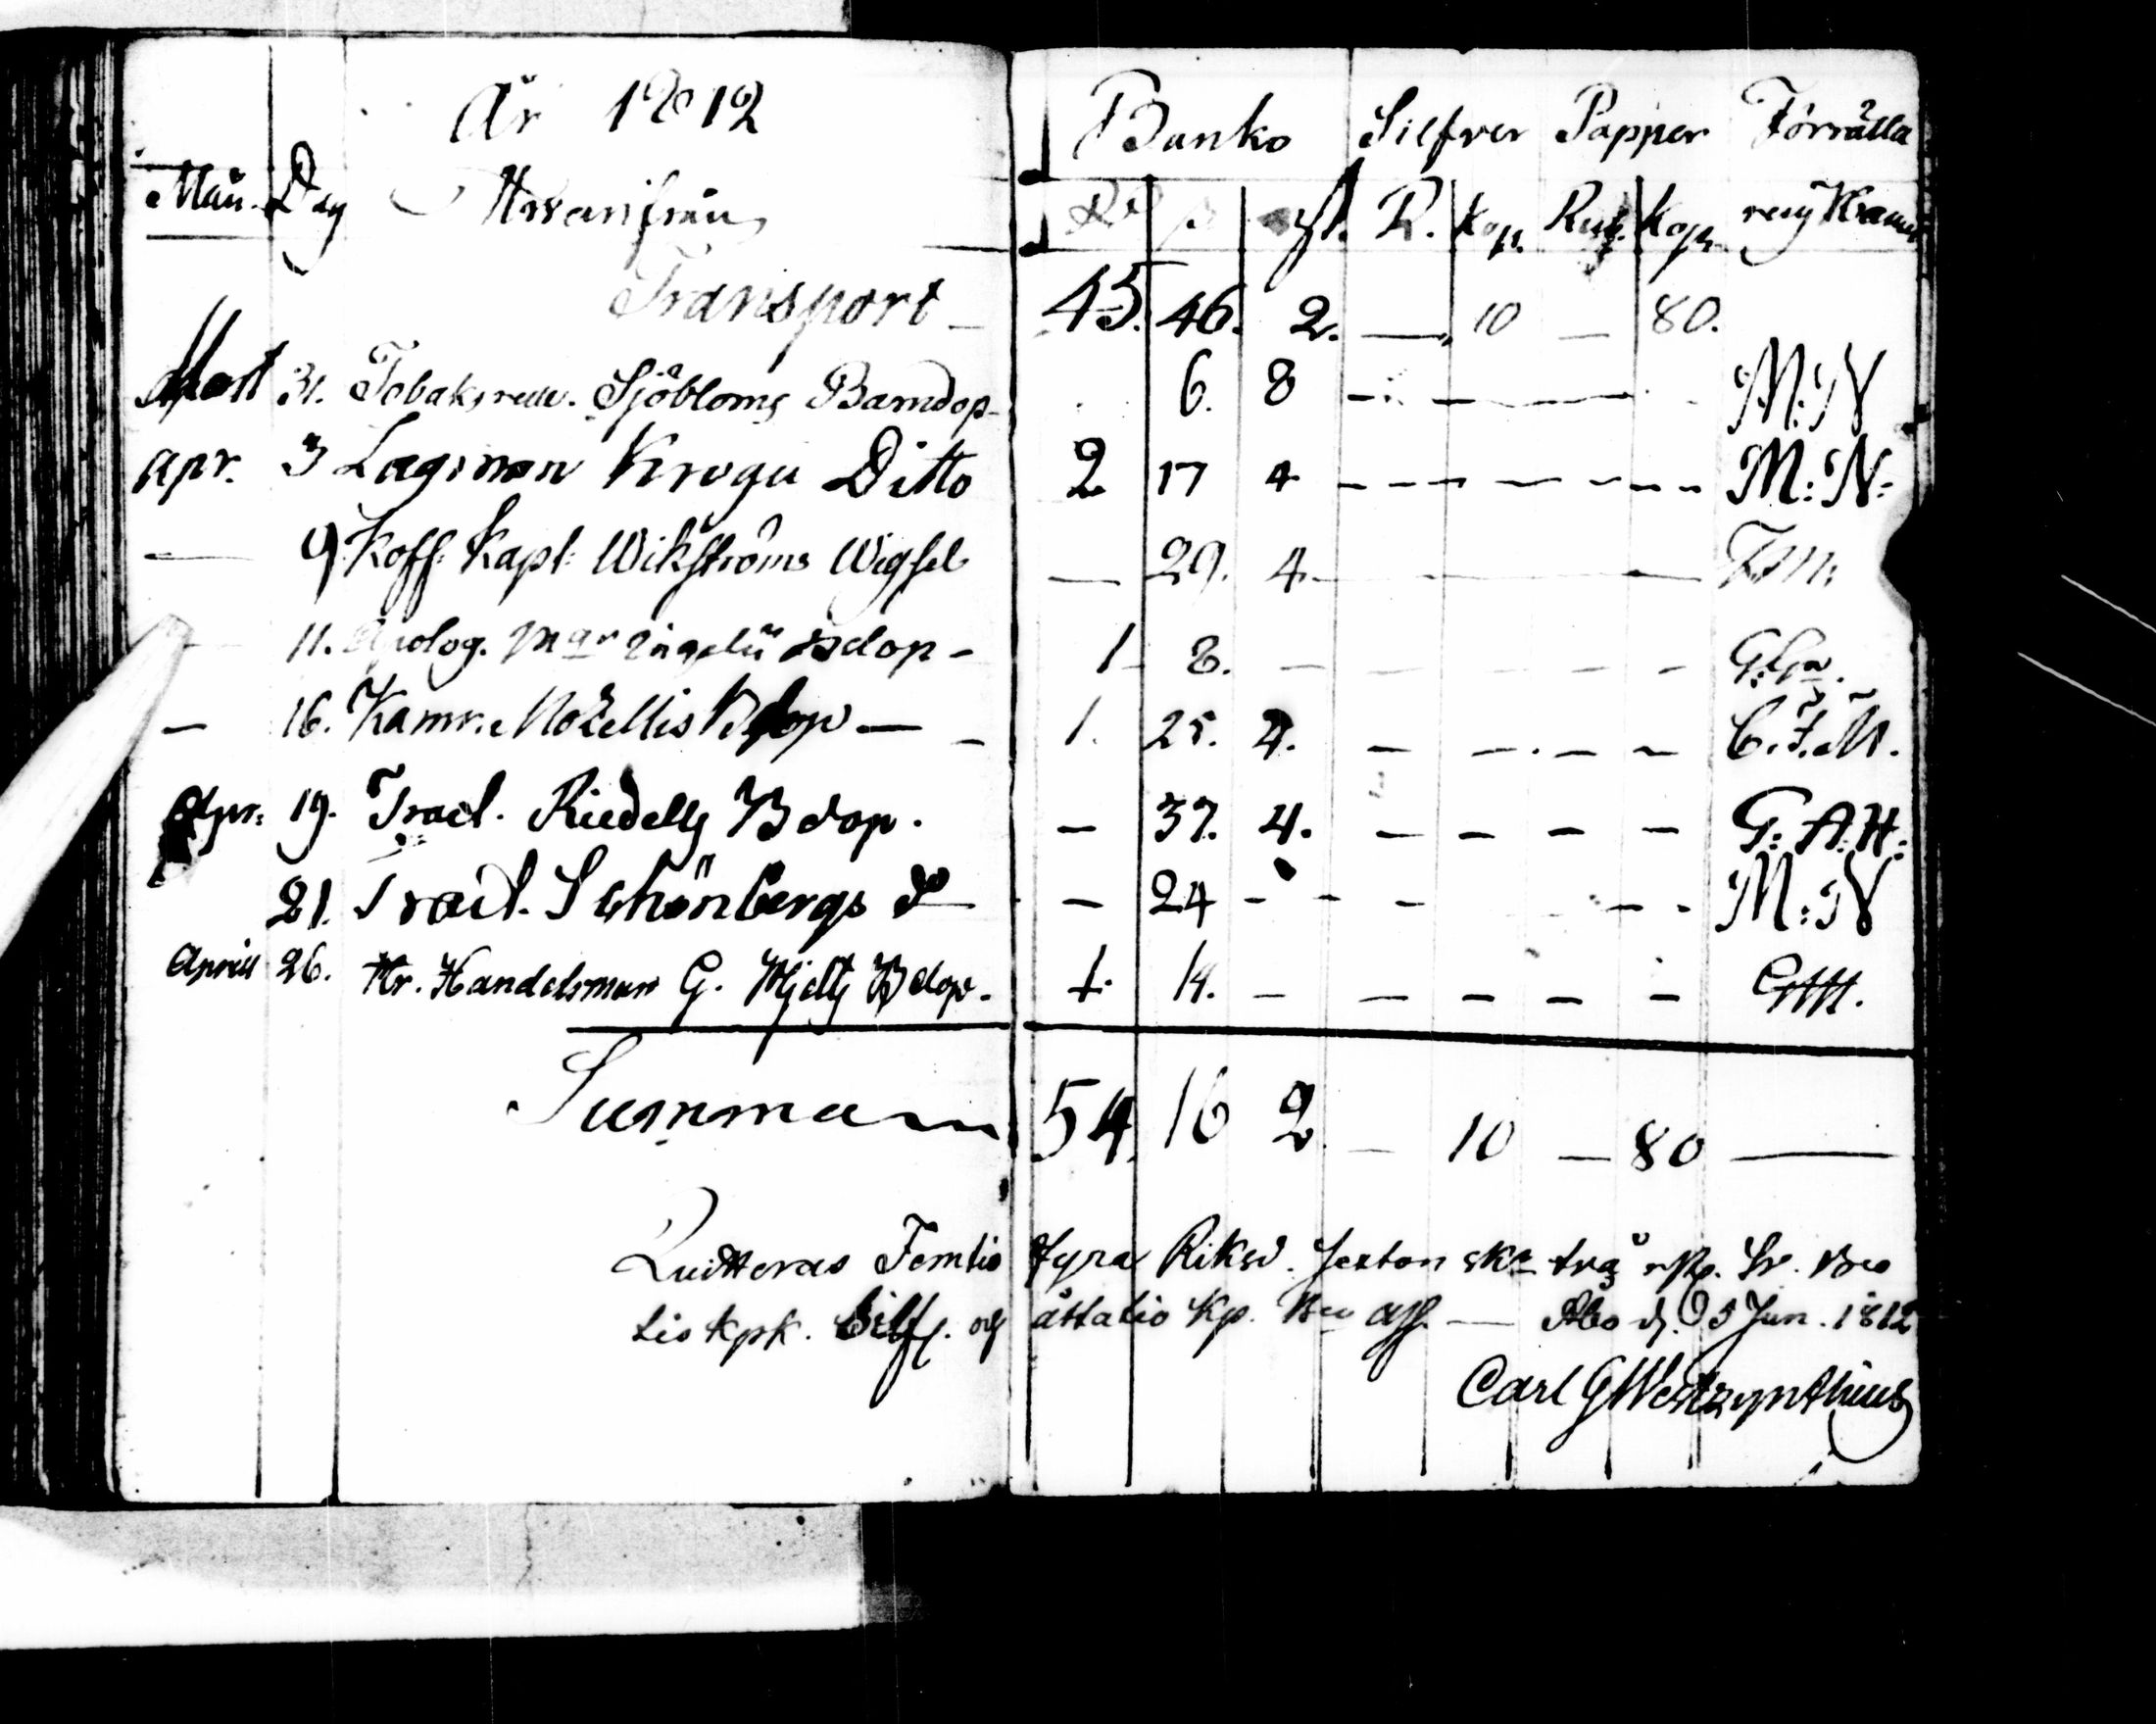 År 1812
Banko Silfver Papper Förrätta
Mån. Dag Hvarifrån
Rd ß rst. R. Kop. Rub. Kop. rens Namn
Transport 45. 46. 2. — 10 — 80.
Mart 31. Tobaksrulle. Sjöbloms Barndop 6. 8 — — — M:N
Apr. 3 Lagman Krogii Ditto 2 17 4 - - - - - - M:N:
— 9 Koff. Kapt: Wikströms Wigsel — 29. 4 — —
11. Apolog. Bdop - 1 8. - - - - -
— 16. Kamr. Mozellis Bdop — - 1. 25. 4. - - - - C.F.M.
Apr: 19. Tract. Riedells Bdop. - 37. 4. - - - - G:A:H:
21. Tract. Schönbergs do - 24 - - - - - M:N
April 26. Hr. Handelsman G. Hjelts Bdop. 1. 14. - - - - - GAH.
Summa 54. 16 2 — 10 — 80 —
Quitteras Femtio fyra Riksd. sexton sk. två rst. Sv. Bco
tio kpk. Silf. och åttatio Kp. Bco ass. — Åbo d. 5 Jun. 1812
Carl G Westzynthius